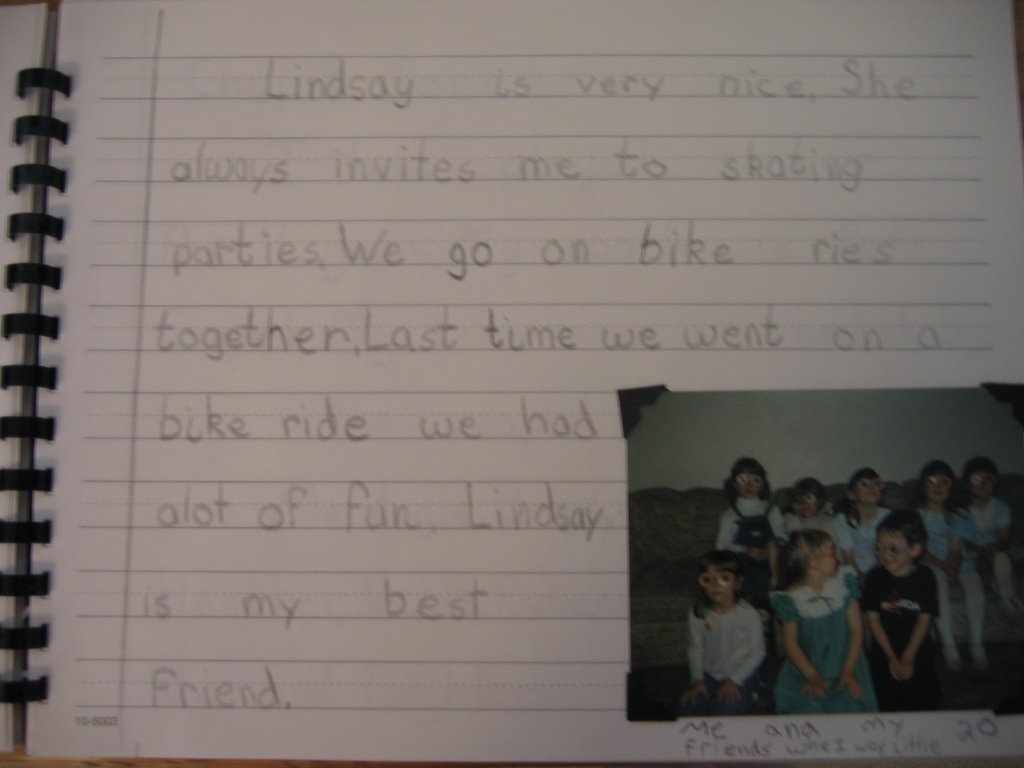 Lindsay is very nice. She
always invites me to skating
parties. We go on bike ries
together. Last time we went on a
bike ride we had
alot of fun. Lindsay
is my best
Friend.
10-8003
Me and my 20
Friends whe I was little